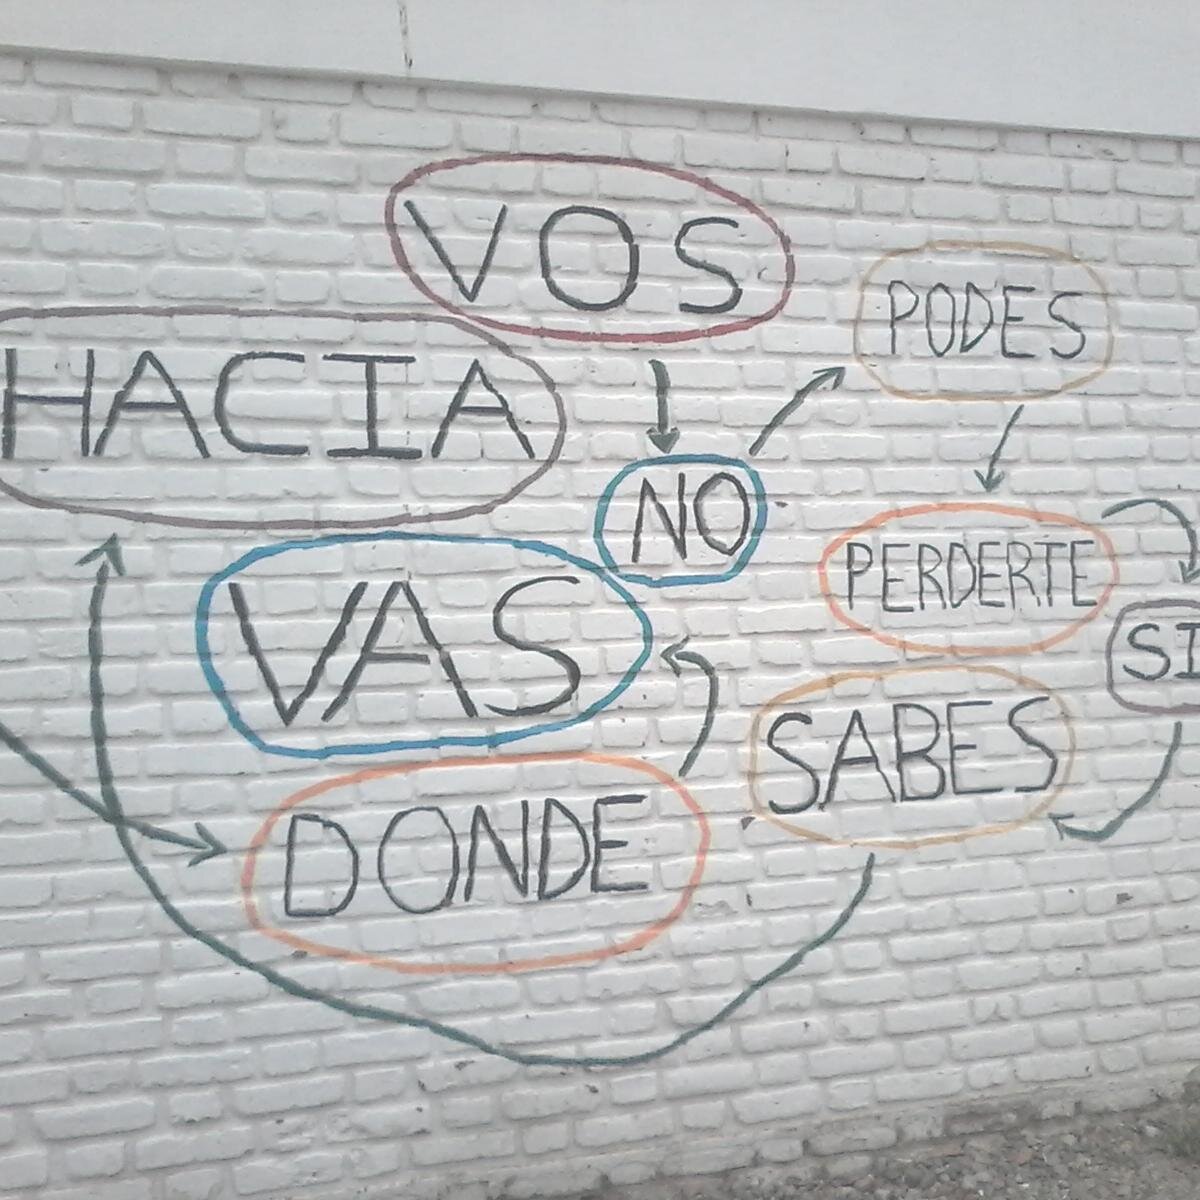 VOS
NO
PODES
PERDERTE
SI
SABES
HACIA
DONDE
VAS